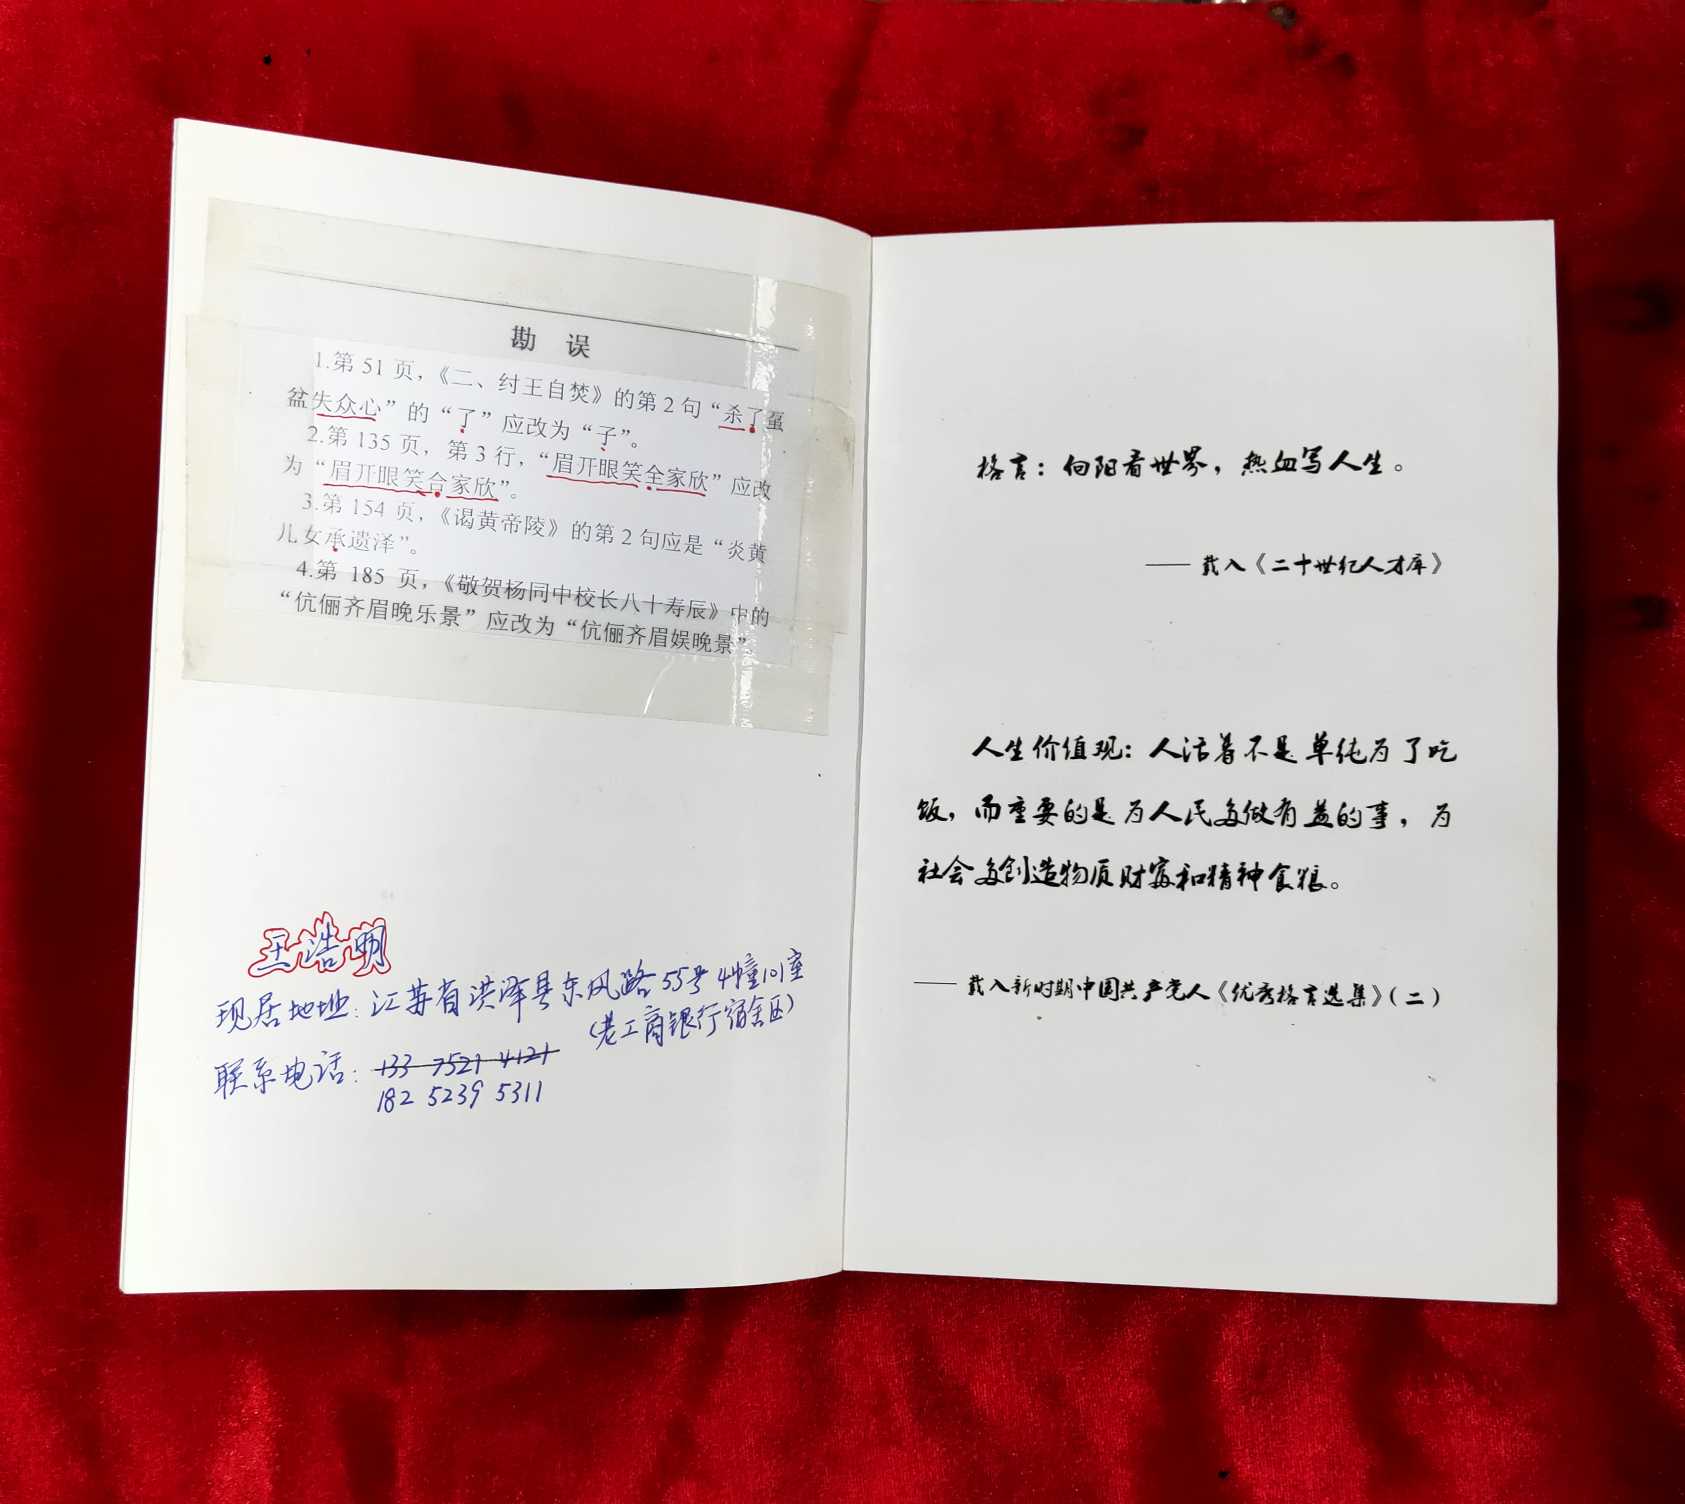 勘 误
1.第 51 页，《二、纣王自焚》的第 2 句“杀了虿
盆失众心”的“了”应改为“子”。
2.第 135 页，第 3 行，“眉开眼笑全家欣”应改
为“眉开眼笑合家欣”。
3.第 154 页，《谒黄帝陵》的第 2 句应是“炎黄
儿女承遗泽”。
4.第 185 页，《敬贺杨同中校长八十寿辰》中的
“伉俪齐眉晚乐景”应改为“伉俪齐眉娱晚景”。
王浩明
现居地址：江苏省洪泽县东风路55号4幢101室
（老工商银行宿舍区）
联系电话：133 7521 4121
182 5239 5311
格言：向阳看世界，热血写人生。
——载入《二十世纪人才库》
人生价值观：人活着不是单纯为了吃
饭，而重要的是为人民多做有益的事，为
社会多创造物质财富和精神食粮。
——载入新时期中国共产党人《优秀格言选集》（二）